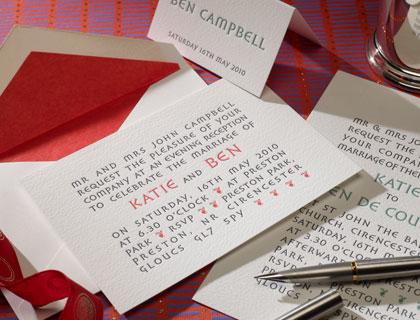 BEN CAMPBELL
SATURDAY 16TH MAY 2010
MR AND MRS JOHN CAMPBELL
REQUEST THE PLEASURE OF YOUR
COMPANY AT AN EVENING RECEPTION
TO CELEBRATE THE MARRIAGE OF
KATIE AND BEN
ON SATURDAY, 16TH MAY 2010
AT 6.30 O'CLOCK AT PRESTON
PARK RSVP PRESTON PARK,
PRESTON, NR. CIRENCESTER
GLOUCS GL7 5PY
MR & MRS JOH
REQUEST THE
YOUR COMPA
MARRIAGE OF THE
KATI
EN DE COU
ST JOHN THE BA
CHURCH, CIRENCES
AT 3.30 O'CLOCK
AFTERWAR
PARK
RSVP
PRESTON
CIRENC
GLOUCS